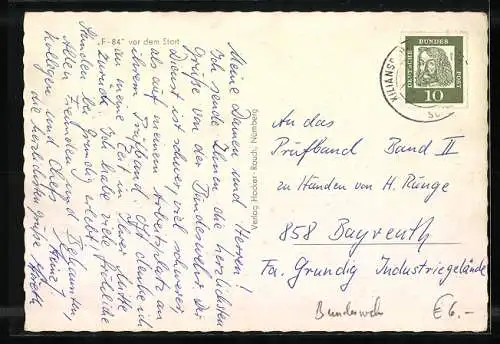 „F-84" vor dem Start
Meine Damen und Herren!
Ich sende Ihnen die herzlichsten
Grüße von der Bundeswehr. Der
Dienst ist schwer, viel schwerer,
als auf meinem Arbeitsplatz an
ihrem Prüfband. Oft denke ich
an meine Zeit in Ihrer Mitte
zurück. Ich habe viele fröhliche
Stunden bei Grundig erlebt!
Allen Freunden und Bekannten,
Kollegen und Chefs
die herzlichsten Grüße
Verlag Hader-Rauch, Nürnberg
KILIANSD
DEUTSCHE
BUNDES
POST
10
An das
Prüfband Band II
zu Händen von H. Runge
858 Bayreuth
Fa. Grundig Industriegelände
Bundeswehr
€ 6.-